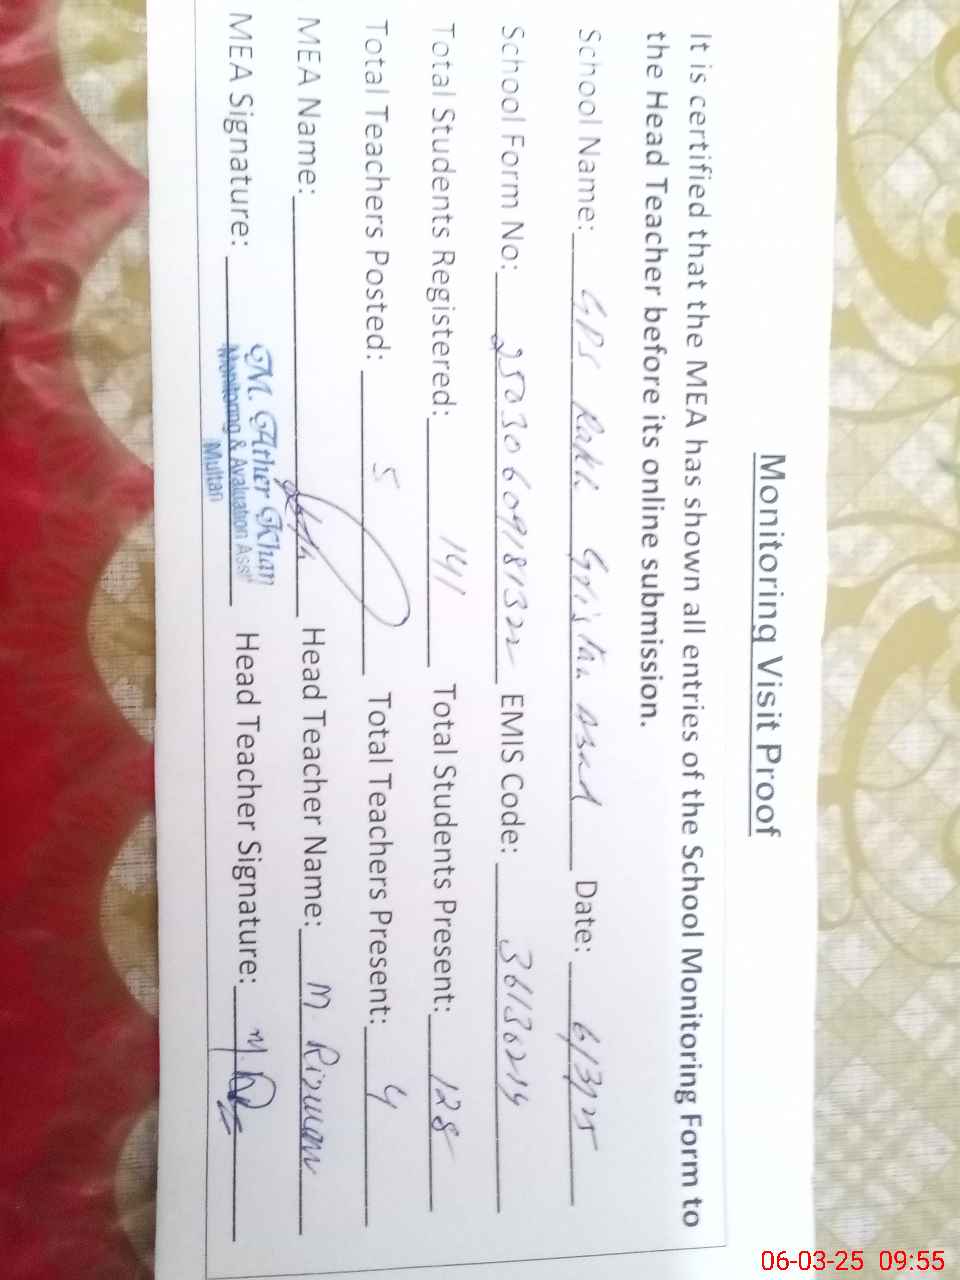 Monitoring Visit Proof
It is certified that the MEA has shown all entries of the School Monitoring Form to
the Head Teacher before its online submission.
School Name: GPS Rakh Date: 6/3/25
School Form No: 25030609181322 EMIS Code: 36130214
Total Students Registered: 141 Total Students Present: 128
Total Teachers Posted: 5 Total Teachers Present: 4
MEA Name: Head Teacher Name: M. Rizwan
MEA Signature: M. Ather Khan Head Teacher Signature: M.
Monitoring & Avaluation Asst
Multan
06-03-25 09:55